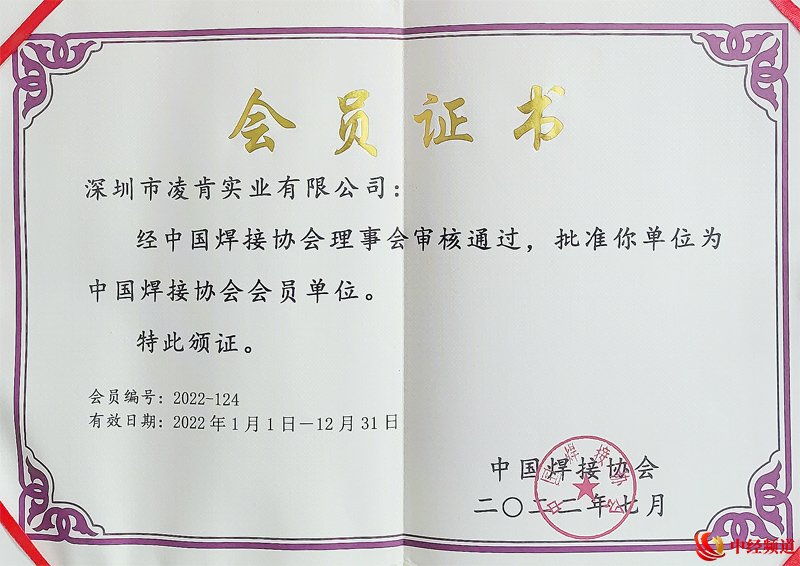 会员证书
深圳市凌肯实业有限公司：
经中国焊接协会理事会审核通过，批准你单位为
中国焊接协会会员单位。
特此颁证。
会员编号：2022-124
有效日期：2022年1月1日－12月31日
中国焊接协会
二〇二二年七月
中国焊接协会
中经频道